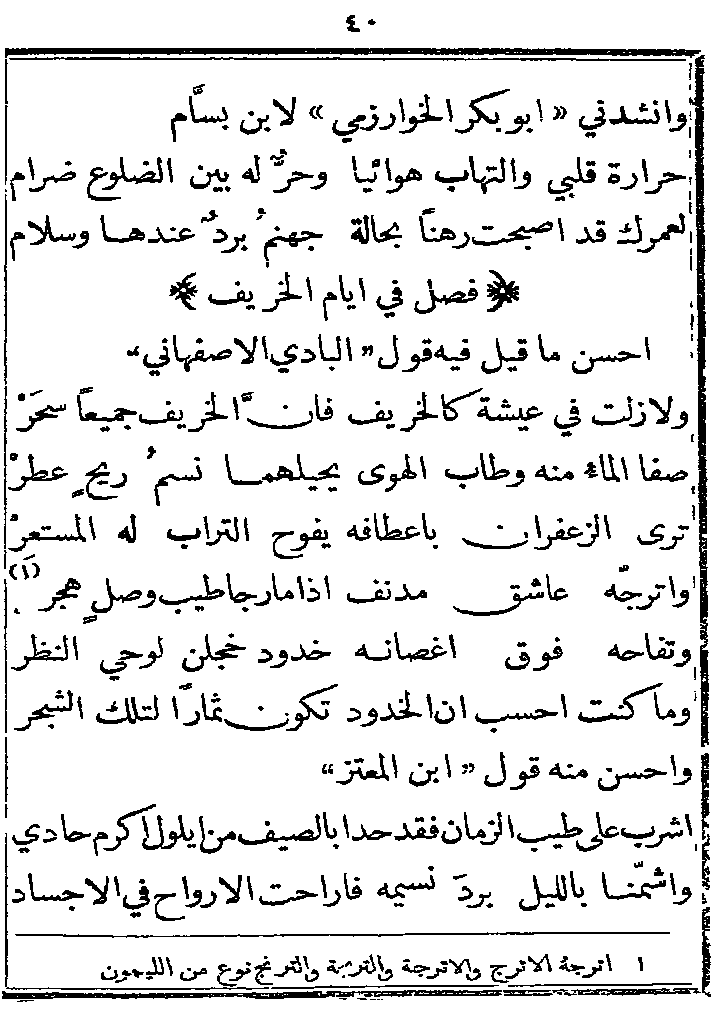 ٤٠
وانشدني « ابو بكر الخوارزمي » لابن بسَّام
حرارة قلبي والتهاب هوائيا وحرٌّ له بين الضلوع ضرام
لعمرك قد اصبحت رهناً بحالة جهنمُ بردٌ عندها وسلام
﴿ فصل في ايام الخريف ﴾
احسن ما قيل فيه قول „ البادي الاصفهاني “
ولازلت في عيشة كالخريف فان َّالخريف جميعاً سحَرْ
صفا الماءُ منه وطاب الهوى يحيلهما نسمُ ريحٍ عطرْ
ترى الزعفران باعطافه يفوح التراب له المستعرْ
واترجّه عاشق مدنف اذا مارجا طيب وصلٍ هجر (١)
وتفاحه فوق اغصانه خدود خجلن لوحي النظر
وما كنت احسب ان الخدود تكون ثمارًا لتلك الشجر
واحسن منه قول „ ابن المعتز “
اشرب على طيب الزمان فقد حدا بالصيف من ايلول اكرم حادي
واشمّنا بالليل بردَ نسيمه فاراحت الارواح في الاجساد
١ اترجهُ الاترج والاترجة والترنجة والترنج نوع من الليمون